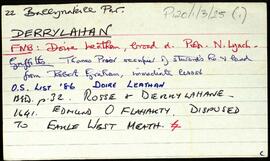 22 Ballynakill Par. P120/1/3/25 (1)
DERRYLAHAN
FNB. Doire leathan, broad d. Rev. N. Lynch.
Griffith Thomas Prior occupier of stewards ho & land
from Robert Graham, immediate lessor
O.S. LIST '86 DOIRE LEATHAN
BSD. p. 32. ROSSE & DERRYLAHANE
1641. EDMUND O FLAHARTY. DISPOSED
TO EARLE WEST MEATH.
c